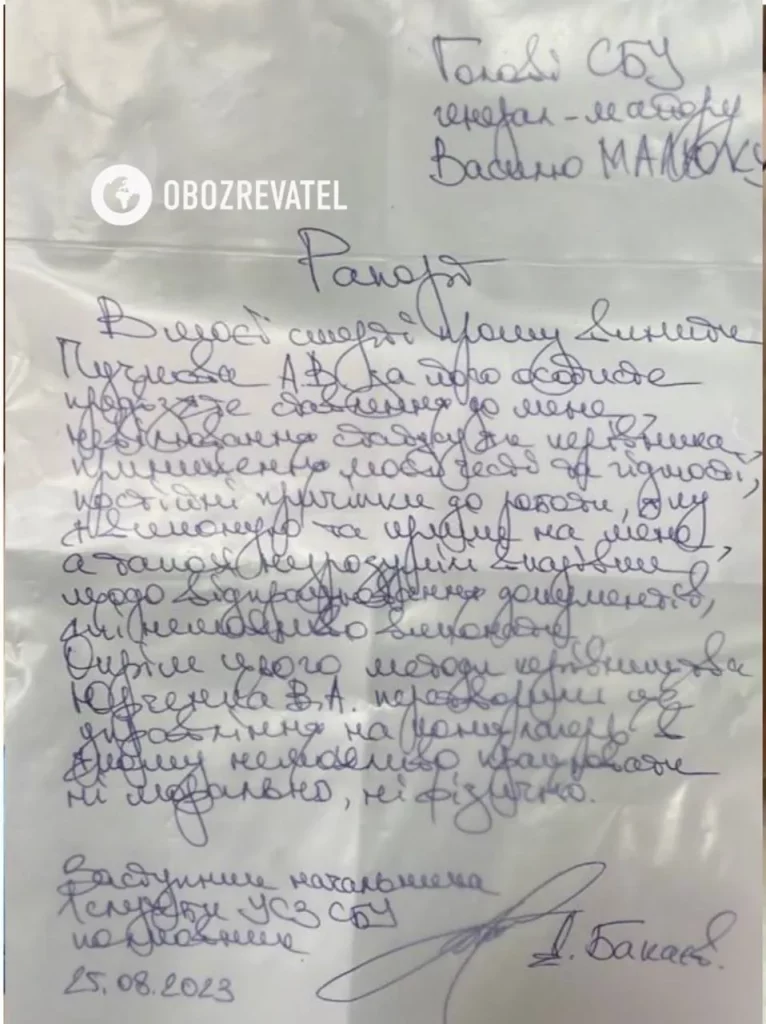 Голові СБУ
генерал-майору
Василю МАЛЮКУ
OBOZREVATEL
Рапорт
В моєї смерті прошу винити
А.В. за його особисте
ставлення до мене,
керівника,
приниження моєї честі та гідності,
постійні до роботи, яку
я виконую та крики на мене,
а також незрозумілі вказівки
щодо відпрацювання документів,
які неможливо виконати.
Окрім цього методи керівництва
Юрченка В.А. перетворили
управління на концтабір в
якому неможливо працювати
ні морально, ні фізично.
Заступник начальника
служби УСЗ СБУ
полковник
Бакаєв.
25.08.2023